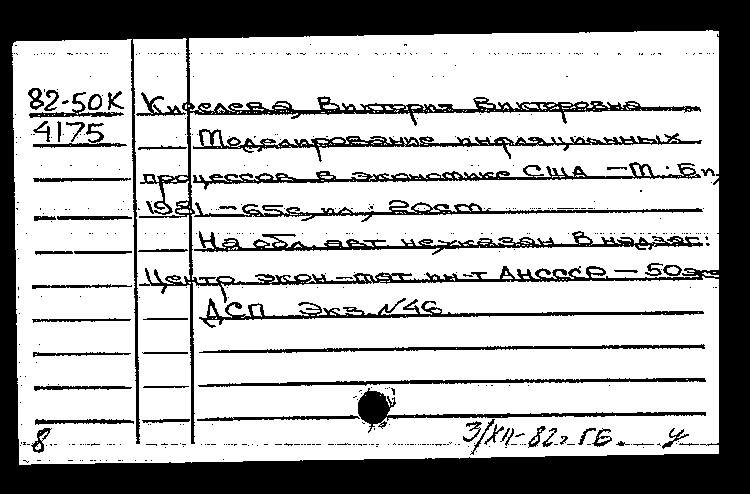 82-50К Киселева, Виктория Викторовна
4175 Моделирование инфляционных
процессов в экономике США — М.: Б.и.,
1981. — 65с., ил.; 20см.
На обл. авт. не указан. В надзаг.:
Центр. экон.-мат. ин-т АН СССР. — 50экз
ДСП Экз. N46
8 3/XII-82г. ГБ. У